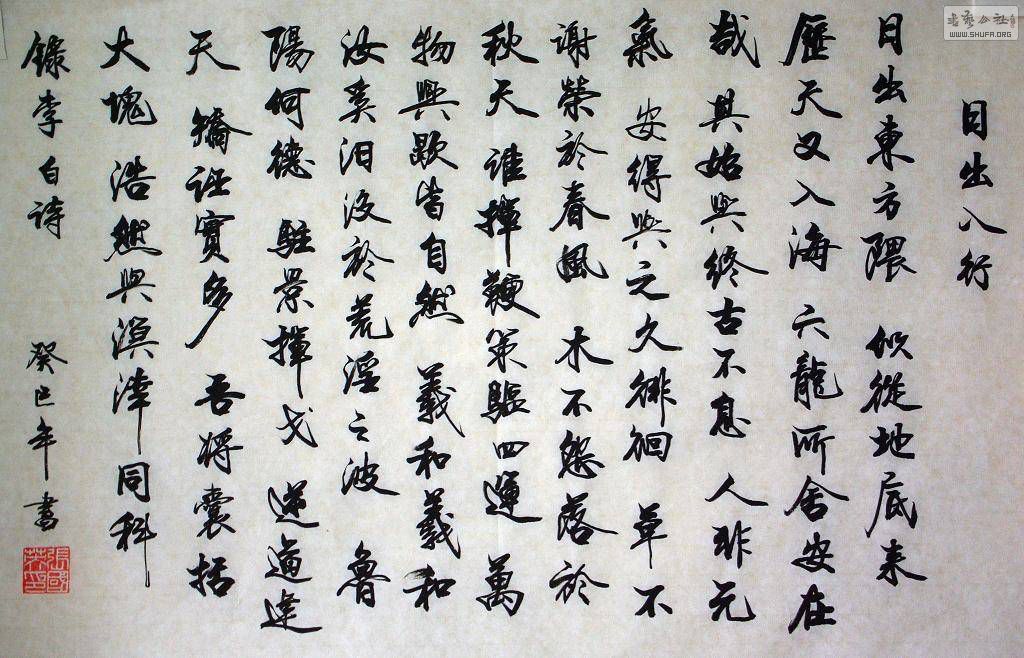 日出入行
日出東方隈 似從地底来
歷天又入海 六龍所舍安在
哉 其始與終古不息 人非元
氣 安得與之久徘徊 草不
謝榮於春風 木不怨落於
秋天 誰揮鞭策驅四運 萬
物興歇皆自然 羲和羲和
汝奚汩没於荒淫之波 魯
陽何德 駐景揮戈 逆道違
天 矯誣實多 吾將囊括
大塊 浩然與溟涬同科
錄李白詩 癸巳年書
張國
WWW.SHUFA.ORG